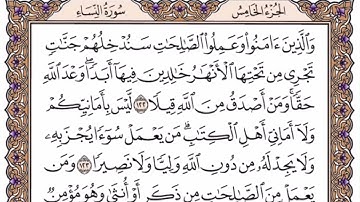 الجزء الخامس سورة النساء
وَالَّذِينَ ءَامَنُوا وَعَمِلُوا الصَّٰلِحَٰتِ سَنُدْخِلُهُمْ جَنَّٰتٍ
تَجْرِى مِن تَحْتِهَا الْأَنْهَٰرُ خَٰلِدِينَ فِيهَا أَبَدًا ۖ وَعْدَ اللَّهِ
حَقًّا ۚ وَمَنْ أَصْدَقُ مِنَ اللَّهِ قِيلًا ١٢٢ لَّيْسَ بِأَمَانِيِّكُمْ
وَلَا أَمَانِىِّ أَهْلِ الْكِتَٰبِ ۗ مَن يَعْمَلْ سُوءًا يُجْزَ بِهِ
وَلَا يَجِدْ لَهُ مِن دُونِ اللَّهِ وَلِيًّا وَلَا نَصِيرًا ١٢٣ وَمَن
يَعْمَلْ مِنَ الصَّٰلِحَٰتِ مِن ذَكَرٍ أَوْ أُنثَىٰ وَهُوَ مُؤْمِنٌ